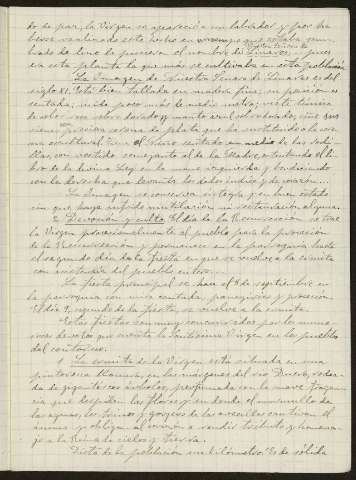 do de paz, la Virgen se apareció a un labrador y por ha
berse realizado este hecho en un campo que estaba sem
brado de lino le pusieron el nombre de Linares, pues
era esta planta la que más se cultivaba en esta población
La Imagen de Nuestra Señora de Linares es del
siglo XI. Está bien tallada en madera fina; en posición
sentada; mide poco más de medio metro; viste túnica
de color rosa sobre dorado y manto azul sobre dorado; ciñe sus
sienes preciosa corona de plata que ha sustituido a la coro
na escultural. Tiene el Niño sentado en medio de las rodi
llas, con vestido semejante al de la Madre, ostentando el li
bro de la divina Ley en la mano izquierda y bendiciendo
con la derecha que levanta los dedos índice y de corazón.
La Imagen se conserva íntegra y en buen estado
sin que haya sufrido mutilación ni restauración alguna.
2 Devoción y culto. El día de la Resurrección se trae
la Virgen procesionalmente al pueblo para la procesión
de la Resurrección y permanece en la parroquia hasta
el segundo día de la fiesta en que se vuelve a la ermita
con asistencia del pueblo entero.
La fiesta principal se hace el 8 de septiembre en
la parroquia con misa cantada, panegírico y procesión.
El día 9, segundo de la fiesta, se vuelve a la ermita.
Estas fiestas son muy concurridas por los nume
rosos devotos que cuenta la Santísima Virgen en los pueblos
del contorno.
La ermita de la Virgen está situada en una
pintoresca llanura, en las márgenes del río Duero, rodea
da de gigantescos árboles, perfumada con la suave fragan
cia que despiden las flores y en donde el murmullo de
las aguas, los trinos y gorgeos de las avecillas cautivan el
ánimo y obligan al corazón a rendir tributo y homena
je a la Reina de cielos y tierra.
Dista de la población un kilómetro. Es de sólida